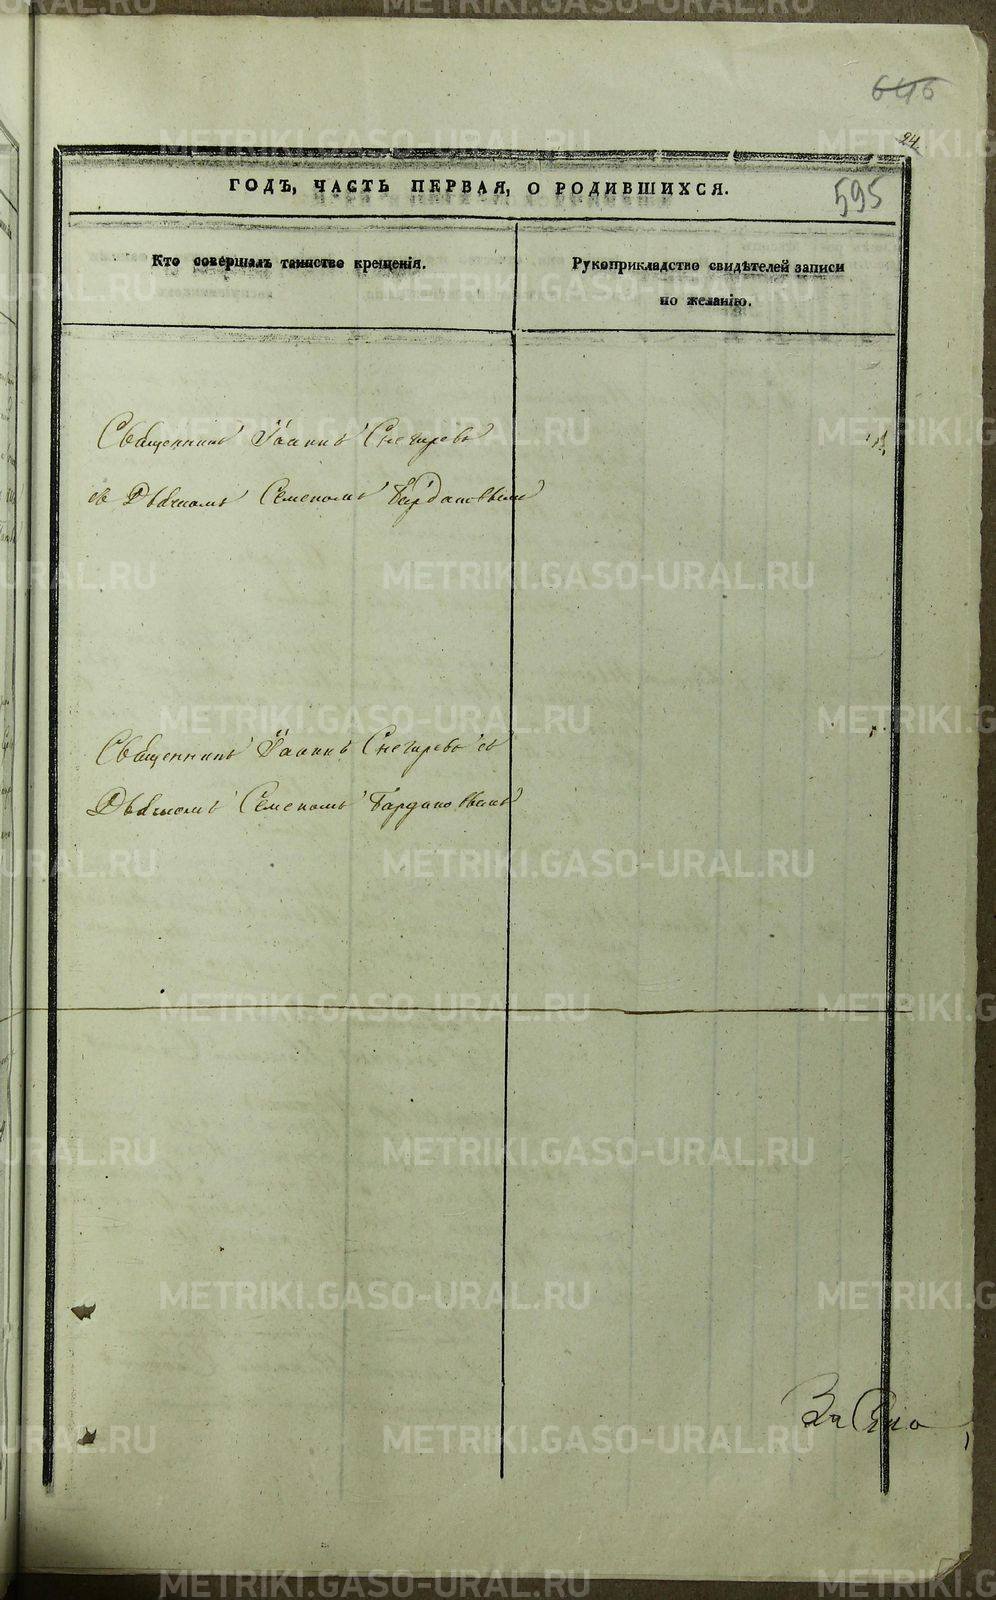 646
24
595
ГОДЪ, ЧАСТЬ ПЕРВАЯ, О РОДИВШИХСЯ.
Кто совершалъ таинство крещенія.
Рукоприкладство свидѣтелей записи
по желанію.
Священникъ Іоаннъ Снегиревъ
съ Дьячкомъ Семеномъ
Священникъ Іоаннъ Снегиревъ съ
Дьячкомъ Семеномъ
METRIKI.GASO-URAL.RU